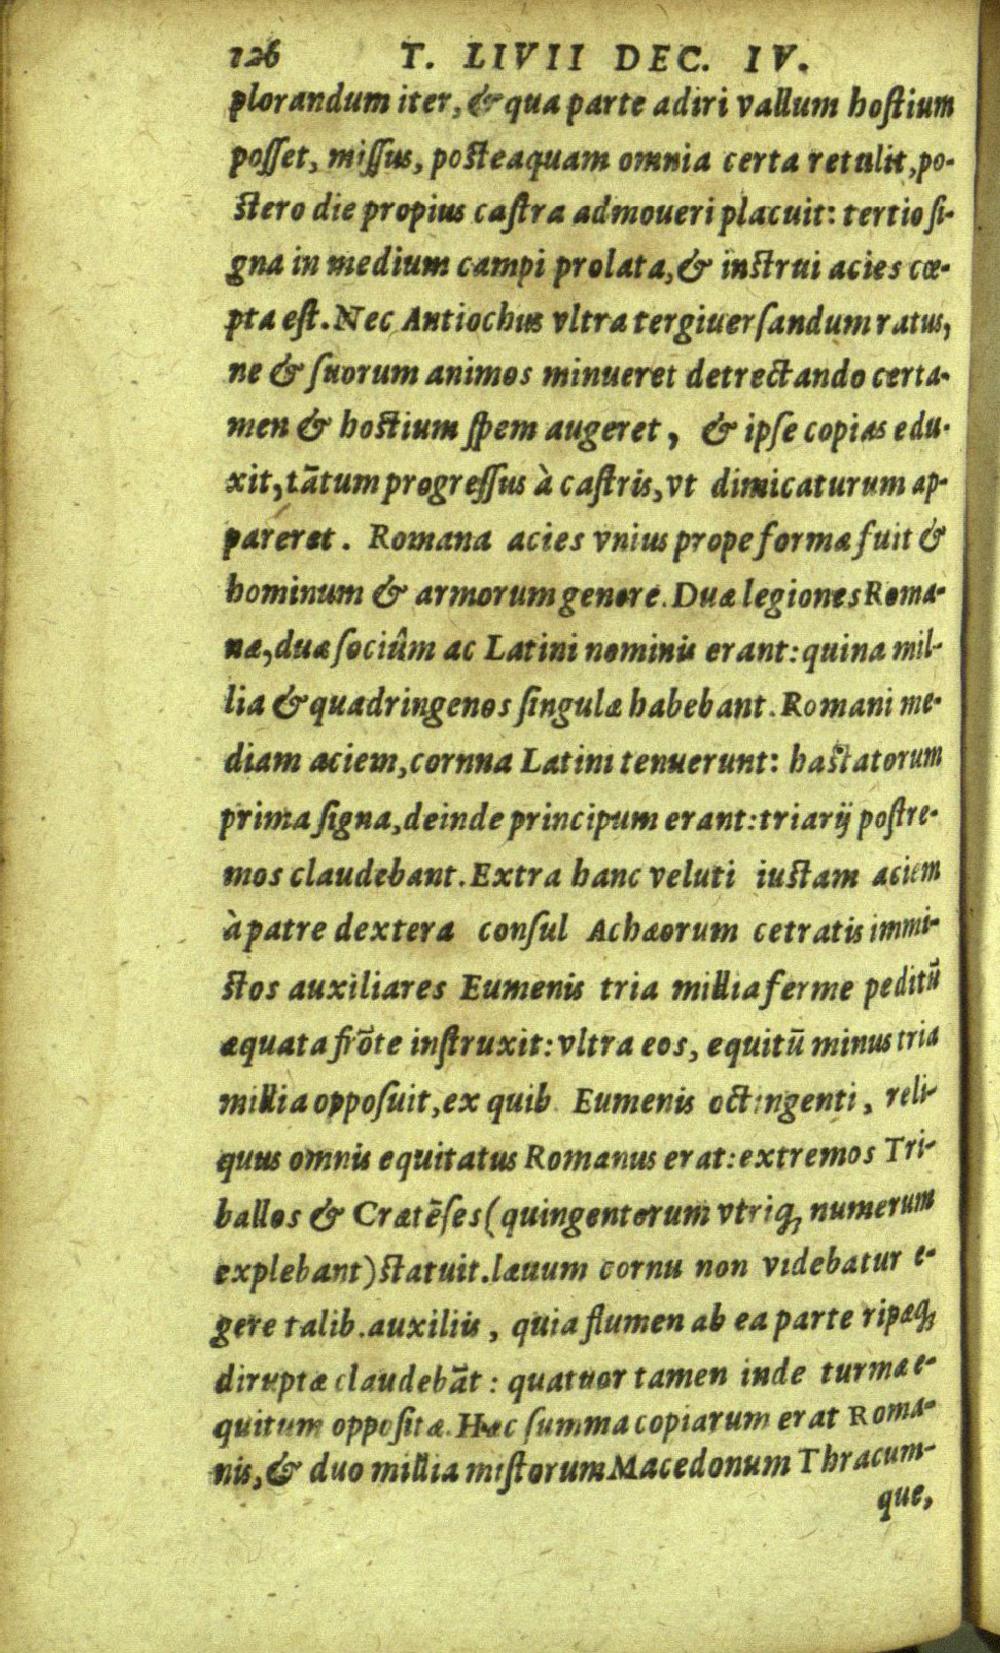 126 T. LIVII DEC. IV.
plorandum iter, & qua parte adiri vallum hostium
posset, missus, posteaquam omnia certa retulit, po-
stero die propius castra admoueri placuit: tertio si-
gna in medium campi prolata, & instrui acies cœ-
pta est. Nec Antiochus vltra tergiuersandum ratus,
ne & suorum animos minueret detrectando certa-
men & hostium spem augeret, & ipse copias edu-
xit, tātum progressus à castris, vt dimicaturum ap-
pareret. Romana acies vnius prope formæ fuit &
hominum & armorum genere. Duæ legiones Roma-
næ, duæ sociûm ac Latini nominis erant: quina mil-
lia & quadringenos singulæ habebant. Romani me-
diam aciem, cornua Latini tenuerunt: hastatorum
prima signa, deinde principum erant: triarij postre-
mos claudebant. Extra hanc veluti iustam aciem
à patre dextera consul Achæorum cetratis immi-
stos auxiliares Eumenis tria millia ferme peditū
æquata frōte instruxit: vltra eos, equitū minus tria
millia opposuit, ex quib. Eumenis octingenti, reli-
quus omnis equitatus Romanus erat: extremos Tri-
ballos & Cratēses (quingentorum vtriq; numerum
explebant) statuit. læuum cornu non videbatur e-
gere talib. auxiliis, quia flumen ab ea parte ripæq;
diruptæ claudebāt: quatuor tamen inde turmæ e-
quitum oppositæ. Hæc summa copiarum erat Roma-
nis, & duo millia mistorum Macedonum Thracum-
que,